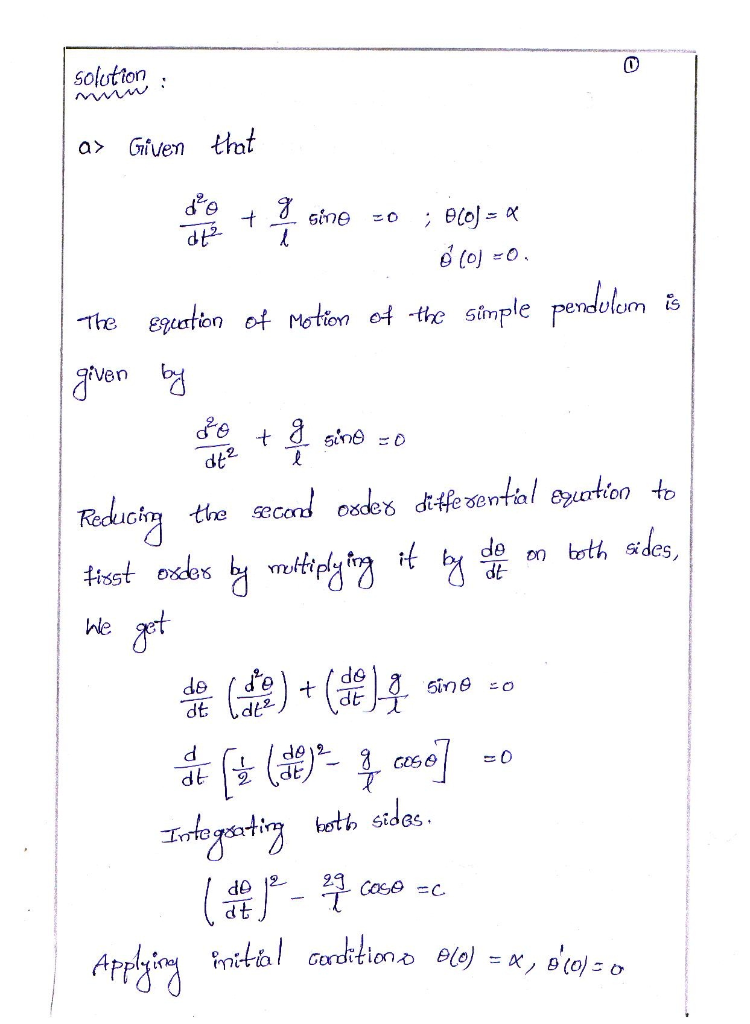 ①
Solution :
a> Given that
d²θ/dt² + g/l sinθ = 0 ; θ(0) = α
θ'(0) = 0.
The equation of Motion of the simple pendulum is
given by
d²θ/dt² + g/l sinθ = 0
Reducing the second order differential equation to
first order by multiplying it by dθ/dt on both sides,
We get
dθ/dt (d²θ/dt²) + (dθ/dt) g/l sinθ = 0
d/dt [1/2 (dθ/dt)² - g/l cosθ] = 0
Integrating both sides.
(dθ/dt)² - 2g/l cosθ = c
Applying initial conditions θ(0) = α, θ'(0) = 0